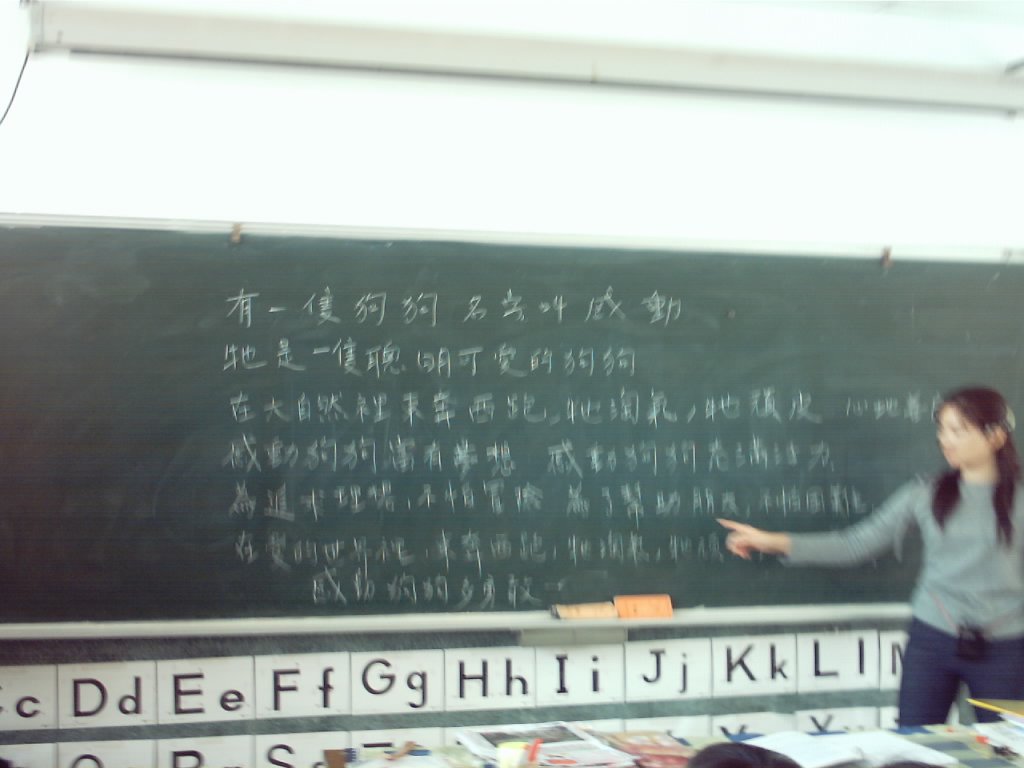 有一隻狗狗 名字叫感動
牠是一隻聰明可愛的狗狗
在大自然裡東奔西跑,牠淘氣,牠頑皮 心地善
感動狗狗富有夢想 感動狗狗充滿活力
為追求理想,不怕冒險 為了幫助朋友,不怕困難
在愛的世界裡,東奔西跑,牠淘氣,牠頑
感動狗狗多勇敢
Cc Dd Ee Ff Gg Hh Ii Jj Kk Ll